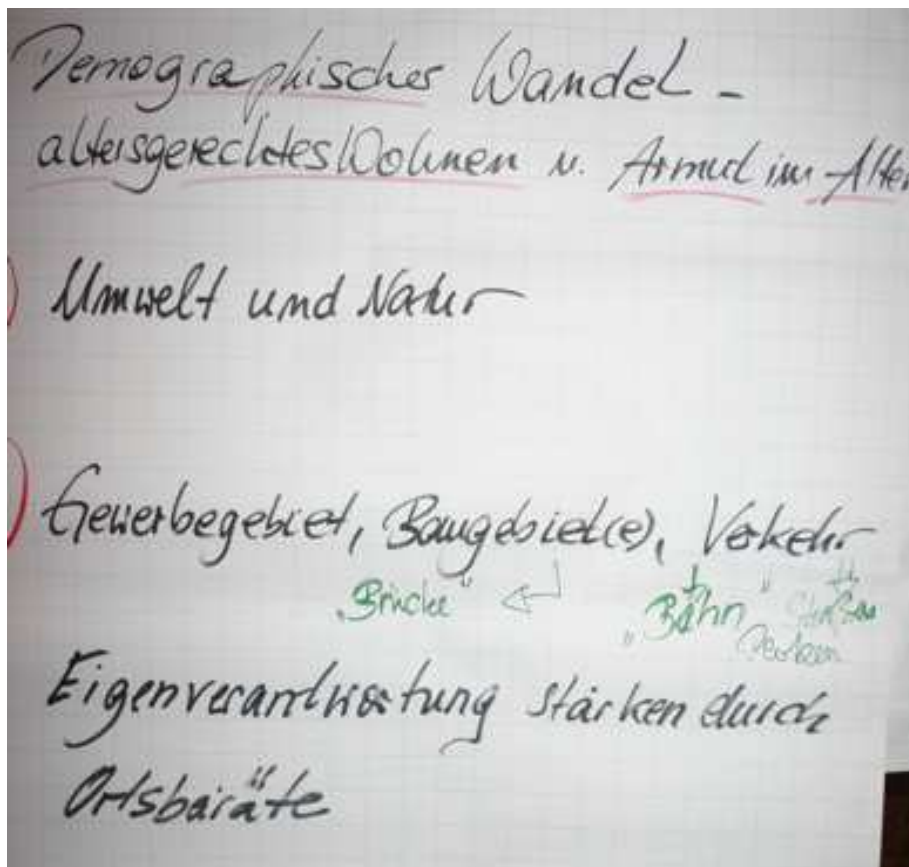 Demographischer Wandel -
altersgerechtes Wohnen u. Armut im Alter
Umwelt und Natur
Gewerbegebiet, Baugebiet(e), Verkehr
„Brücke" „Bahn" Straßen
Eigenverantwortung stärken durch
Ortsbairäte